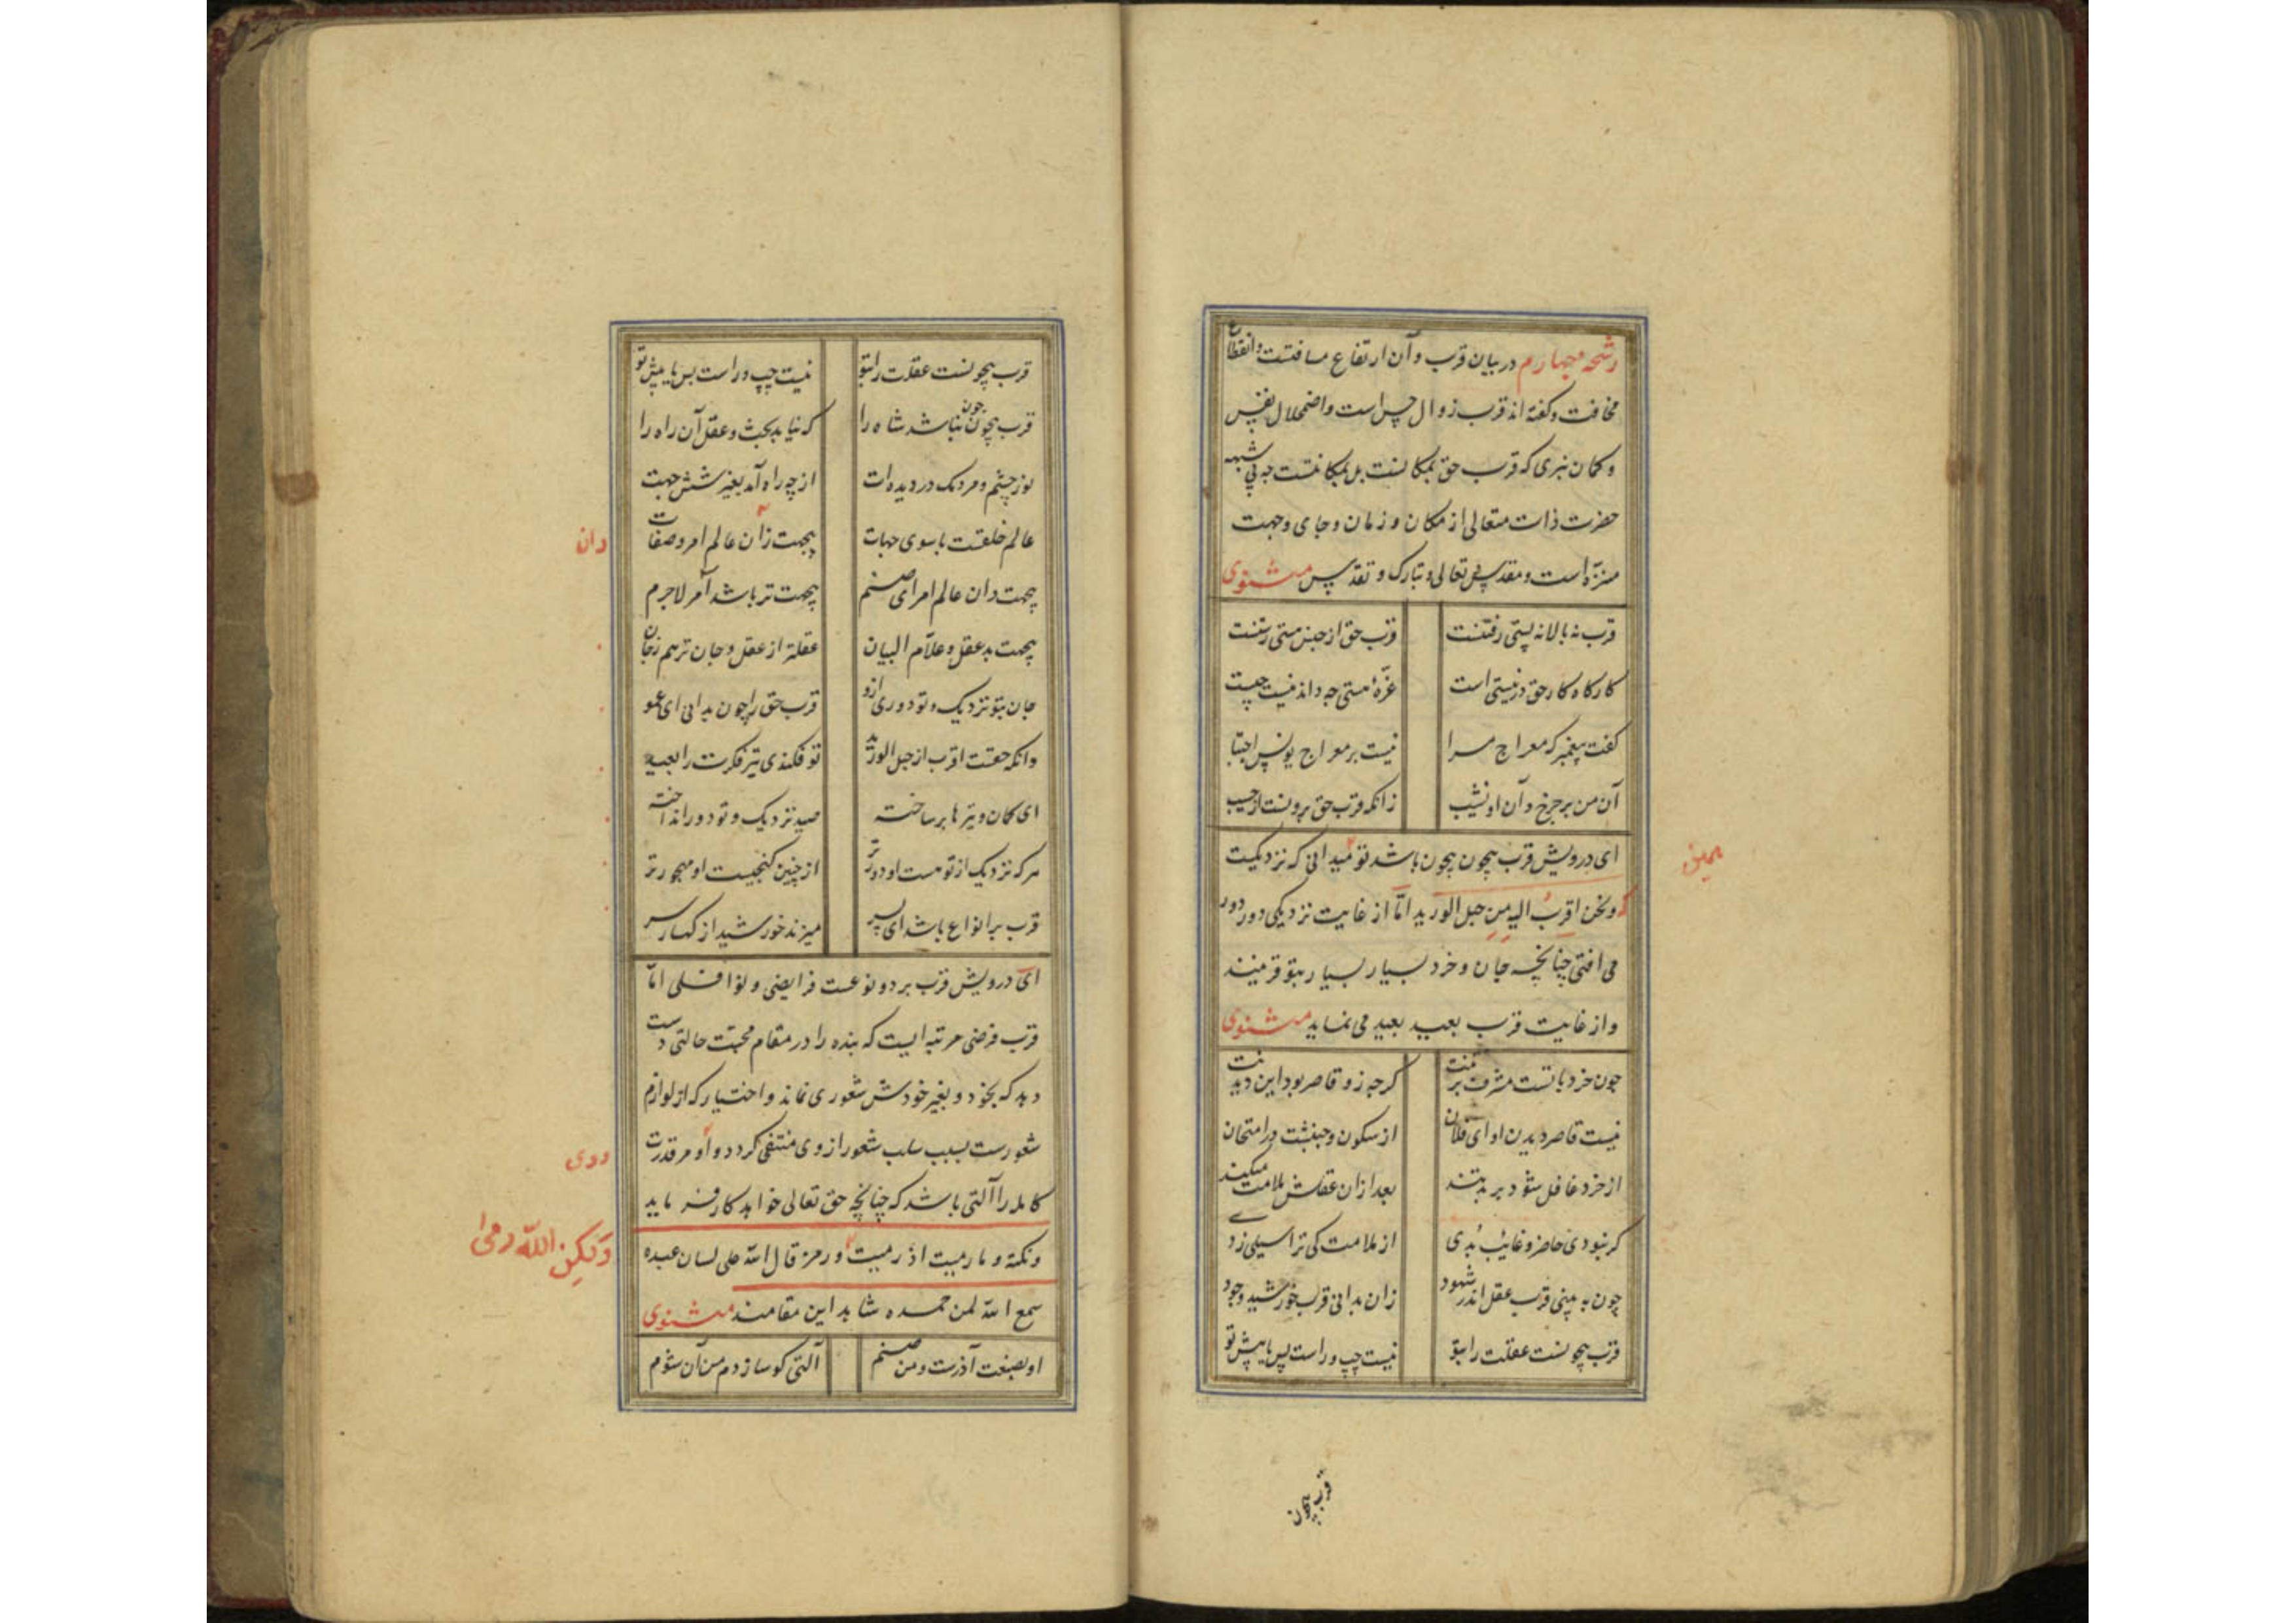 رشحه چهارم در بیان قرب و آن ارتفاع مسافتست و انقطاع
مخافت و گفته اند قرب زوال حس است و اضمحلال نفس
و گمان نبری که قرب حق بمکانست بل بمکانتست چه بی شبهه
حضرت ذات متعالی از مکان و زمان و جای و جهت
منزه است و مقدس تعالی و تبارک و تقدس مثنوی
قرب نه بالا نه پستی رفتنست قرب حق از حبس هستی رستنست
کارگاه کار حق در نیستی است غره هستی چه داند نیست چیست
گفت پیغمبر که معراج مرا نیست بر معراج یونس اجتبا
آن من بر چرخ و آن او نشیب زانکه قرب حق برونست از حسیب
ای درویش قرب بیچون بیچون باشد تو میدانی که نزدیکیت
همین
که و نحن اقرب الیه من حبل الورید اما از غایت نزدیکی دور دور
می افتی چنانچه جان و خرد بسیار بسیار بتو قریبند
و از غایت قرب بعید بعید می نماید مثنوی
چون خرد با تست مشرف بر تنت گرچه زو قاصر بود این دیدنت
نیست قاصر دیدن او ای فلان از سکون و جنبشت در امتحان
از خرد غافل شود بر بد تند بعد ازان عقلش ملامت میکند
گر نبودی حاضر و غایب بدی از ملامت کی ترا سیلی زدی
چون به بینی قرب عقل اندر شهود زان بدانی قرب خورشید وجود
قرب بیچونست عقلت را بتو نیست چپ و راست پس یا پیش تو
قرب بیچون
قرب بیچونست عقلت را بتو نیست چپ و راست پس یا پیش تو
قرب بیچون چون نباشد شاه را که نیابد بحث و عقل آن راه را
نور چشم و مردمک در دیده ات از چه راه آمد بغیر شش جهت
عالم خلقست با سوی جهات بیجهت زان عالم امر و صفات
دان
بیجهت دان عالم امر ای صنم بیجهت تر باشد آمر لاجرم
بیجهت بد عقل و علام البیان عقلتر از عقل و جان تر هم ز جان
جان بتو نزدیک و تو دوری ازو قرب حق را چون بدانی ای عمو
وانکه حقست اقرب از حبل الورید تو فکندی تیر فکرت را بعید
ای کمان و تیرها بر ساخته صید نزدیک و تو دور انداخته
هر که نزدیک از تو هست او دورتر از چنین گنجیست او مهجورتر
قرب بر انواع باشد ای پسر میزند خورشید از کهسار سر
ای درویش قرب بر دو نوعست فرایضی و نوافلی اما
قرب فرضی مرتبه ایست که بنده را در مقام محبت حالتی دست
دهد که بخود و بغیر خودش شعوری نماند و اختیار که از لوازم
شعورست بسبب سلب شعور از وی منتفی گردد و او مر قدرت
و وی
کامله را آلتی باشد که چنانچه حق تعالی خواهد کار فرماید
و نکته و ما رمیت اذ رمیت و رمز قال الله علی لسان عبده
ولکن الله رمی
سمع الله لمن حمده شاهد این مقامند مثنوی
او بصنعت آذرست و من صنم آلتی کو سازدم من آن شوم